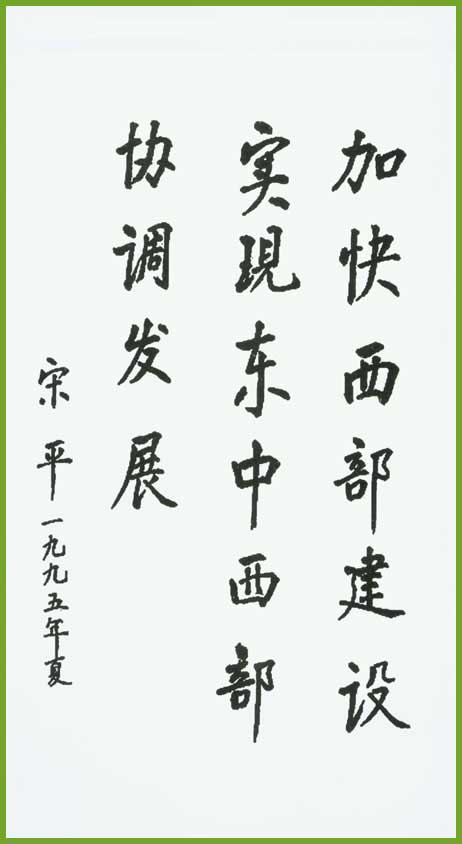 加快西部建设
实现东中西部
协调发展
宋平 一九九五年夏